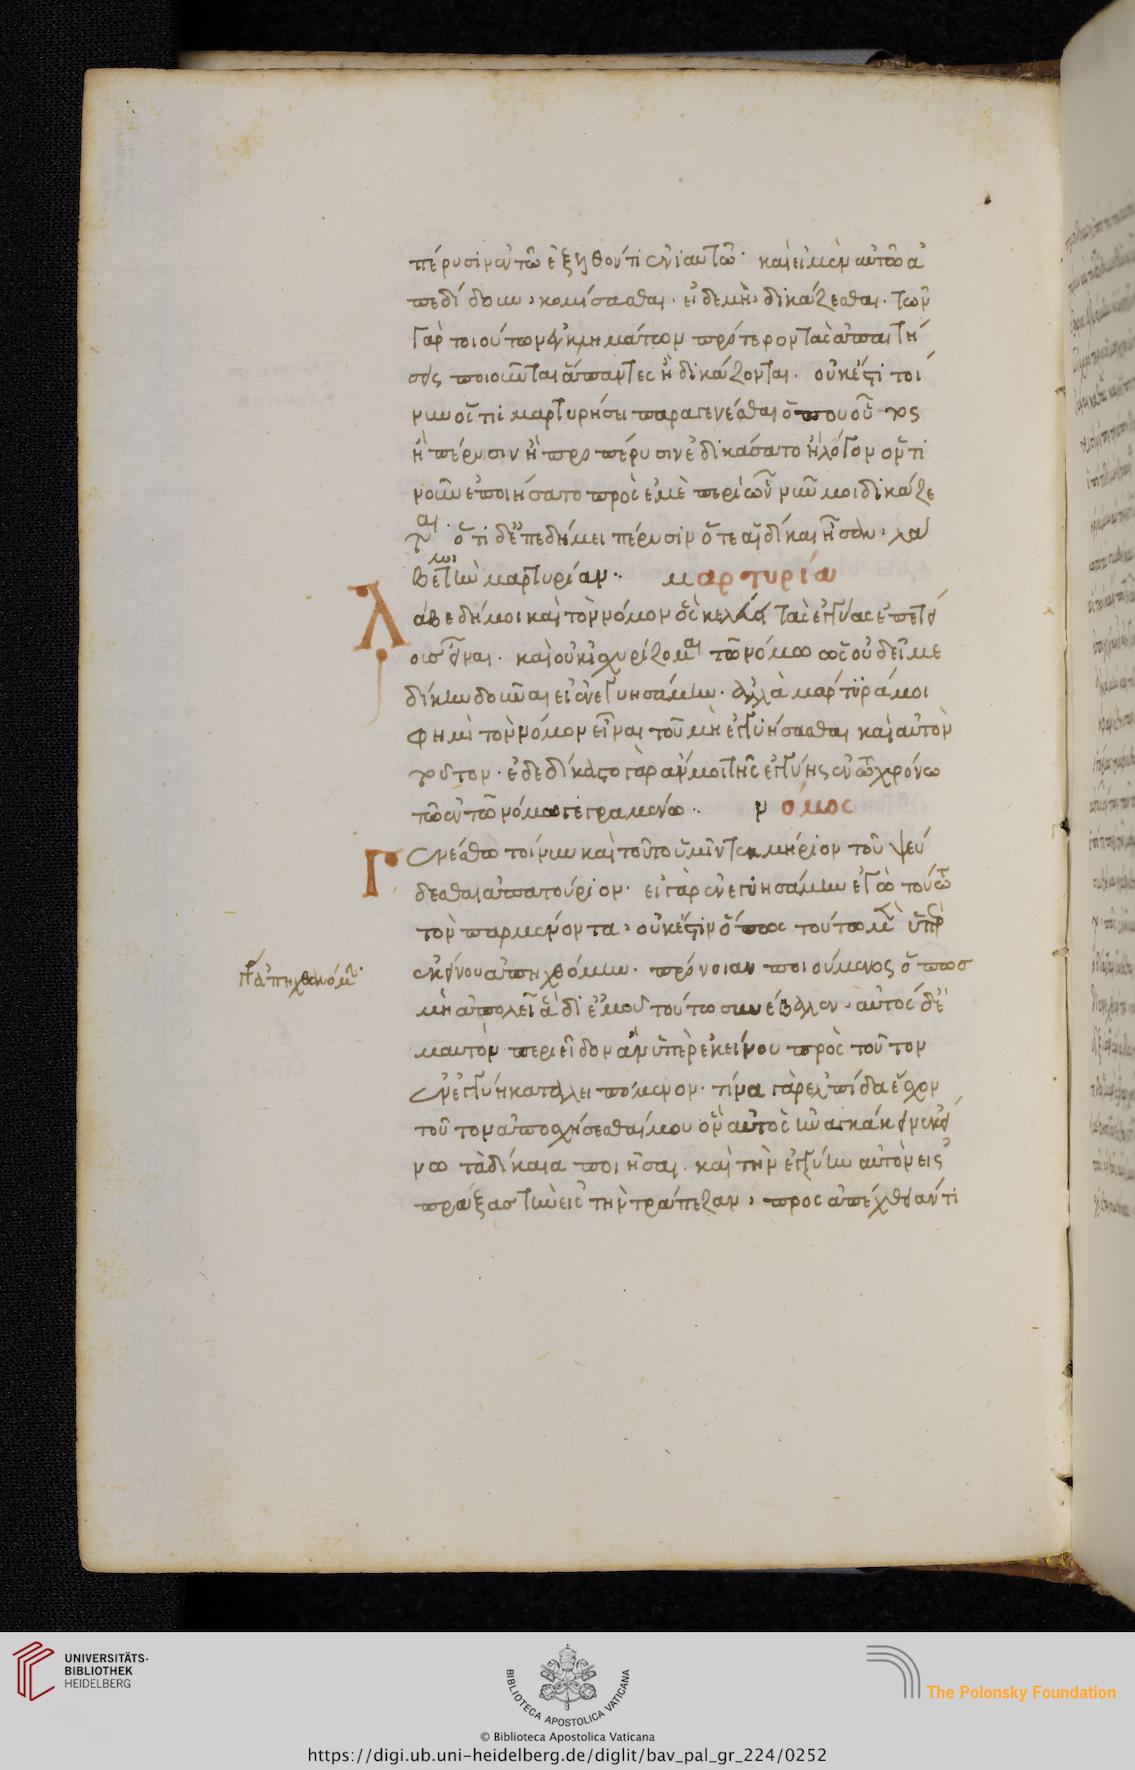 πέρυσιν ἐν τῶ ἐξηθόντι ἐνιαυτῶ· καὶ εἰ μὲν αὐτῶ ἀ
πεδίδουν, κομίσασθαι· εἰ δὲ μὴ, δικάζεσθαι· τῶν
γὰρ τοιούτων ἐγκλημάτων πρότερον τὰς ἀπαιτή
σεις ποιοῦνται ἅπαντες ἢ δικάζονται. οὐκέτι τοί
νυν οὗτοι μαρτυρήσει παραγενέσθαι ὅπου οὗτος
ἢ πέρυσιν ἢ προπέρυσιν ἐδικάσατο ἢ λόγον ὁντι
νοῦν ἐποιήσατο πρὸς ἐμὲ περὶ ὧν νῦν μοι δικάζε
ται. ὅτι δ' ἐπεδήμει πέρυσιν ὅτε αἱ δίκαι ἦσαν, λα
βέ μοι τὴν μαρτυρίαν. μαρτυρία
Λάβε δή μοι καὶ τὸν νόμον ὃς κελεύει τὰς ἐγγύας ἐπετεί
ους εἶναι. καὶ οὐκ ἰσχυρίζομαι τῶ νόμω ὡς οὐ δεῖ με
δίκην δοῦναι εἰ ἐνεγυησάμην. ἀλλὰ μάρτυρά μοί
φημι τὸν νόμον εἶναι τοῦ μὴ ἐγγυήσασθαι καὶ αὐτὸν
τοῦτον· ἐδεδίκαστο γὰρ ἄν μοι τῆς ἐγγύης ἐν τῶ χρόνω
τῶ ἐν τῶ νόμω γεγραμένω. νόμος
Γενέσθω τοίνυν καὶ τοῦτο ὑμῖν τεκμήριον τοῦ ψεύ
δεσθαι ἀπατούριον· εἰ γὰρ ἐνεγυησάμην ἐγὼ τούτω
τὸν παρμένοντα, οὐκ ἔστιν ὅπως τούτω μὲν ὑπὲρ
ἐκείνου ἀπηχθόμην. πρόνοιαν ποιούμενος ὅπωσ
γρ ἀπηχθανόμην
μὴ ἀπολεῖ ἃ δι' ἐμοῦ τούτω συνέβαλεν. αὐτὸς δ' ἐ
μαυτὸν περιεῖδον ἂν ὑπὲρ ἐκείνου πρὸς τοῦτον
ἐν ἐγγύη καταλειπόμενον. τίνα γὰρ ἐλπίδα ἔχον
τοῦτον ἀποσχήσεσθαί μου ὃν αὐτὸς ἠνάγκακειν ἐκεί
νω τὰ δίκαια ποιῆσαι. καὶ τὴν ἐγγύην αὐτὸν εἰς
πράξας τὴν εἰς τὴν τράπεζαν, πρὸς ἀπέχθειαν τί
UNIVERSITÄTS-
BIBLIOTHEK
HEIDELBERG
BIBLIOTECA APOSTOLICA VATICANA
The Polonsky Foundation
© Biblioteca Apostolica Vaticana
https://digi.ub.uni-heidelberg.de/diglit/bav_pal_gr_224/0252